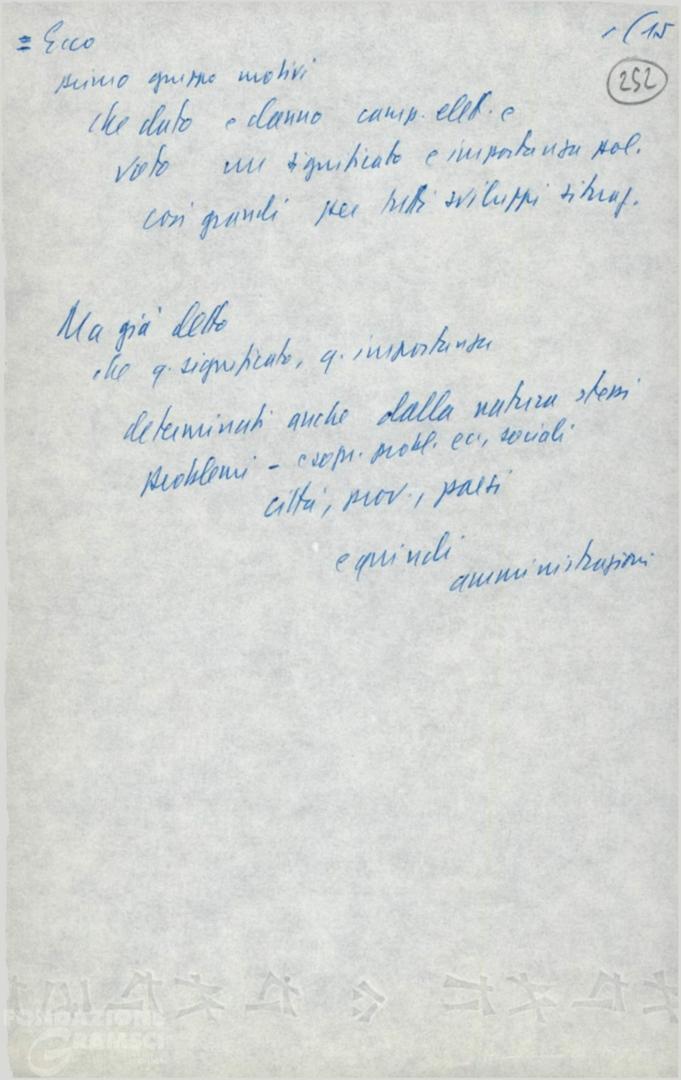 = Ecco
1 (15
252
primo gruppo motivi
che dato e danno camp. elett. e
voto un significato e importanza pol.
così grandi per tutti sviluppi situaz.
Ma già detto
che q. significato, q. importanza
determinati anche dalla natura stessi
problemi - e sopr. probl. ec., sociali
città, prov., paesi
e quindi
amministrazioni
FONDAZIONE
GRAMSCI